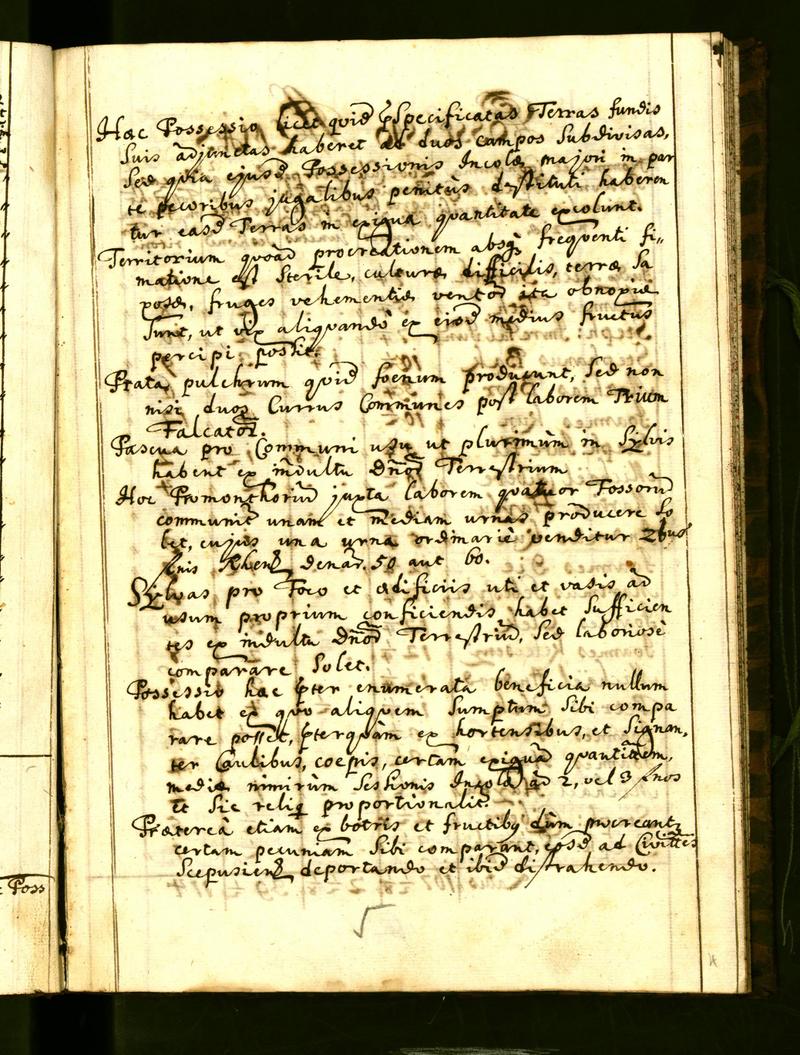 Haec Possessio licet quid pSpecificatas Terras fundis
suis adjunctas haberet ad duos campos Subdivisas,
Sed quia ejusd Possessionis Incolae majori in par
te pecoribus jugalibus penitus destituti haberen
tur easd Terras in exigua quantitate excolunt.
Territorium quoad procreationem absq frequenti fi„
matione est Sterile, culturae difficilis, terrae Sa
posae, fruges vehementiae ventor ita obnoxiae
Sunt, ut vix aliquando ex eiod medius fructus
percipi possit.
Prata pulchrum quid foenum producunt, Sed non
nisi duos Currus Communes post laborem Trium
Falcator.
Pascua pro Communi usu ut plurimum in Sylvis
habent ex indultu Dnor Terrestrium
Hoc Promonthoriu juxta laborem quatuor Fossoru
communit unam et mediam urnas producere So
let, cujus una urna ordinarie venditur 2bus
fnis Rhen denar. 50 aut 60.
Sylvas pro Foco et aedificiis uti et vasis ad
usum proprium conficiendis habet Sufficien
tes ex indultu Dnor Terrestriu, Sed laboriose
comparare Solet.
Possessio haec pter enumerata beneficia nullum
habet ex quo aliquem Sumptum Sibi compa
rare posset, pterquam ex hortensibus, et Signan,
ter Caulibus, coepis, certam exigua quantitatem,
mediae nimirum Sessionis Incola ad 2, vel 3 fnos
et Sic reliq proportionalit.
Praeterea etiam ex botris et fructibq dum procreant
certam pecuniam Sibi comparant, eosd ad Civittes
Scepusien deportando et ibid distrahendo.
5
Poss